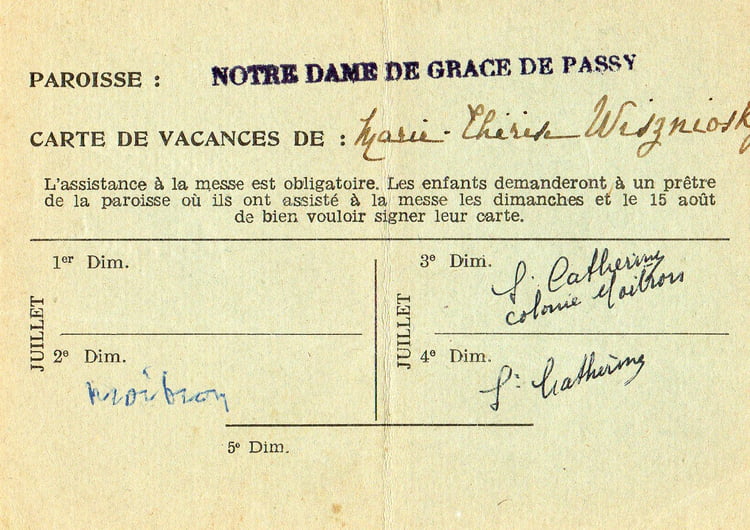 PAROISSE : NOTRE DAME DE GRACE DE PASSY
CARTE DE VACANCES DE : Marie-Thérèse Wiszniosky
L'assistance à la messe est obligatoire. Les enfants demanderont à un prêtre
de la paroisse où ils ont assisté à la messe les dimanches et le 15 août
de bien vouloir signer leur carte.
JUILLET
1er Dim.
2e Dim.
Moitron
JUILLET
3e Dim.
S. Catherine
colonie Moitron
4e Dim.
S: Catherine
5e Dim.